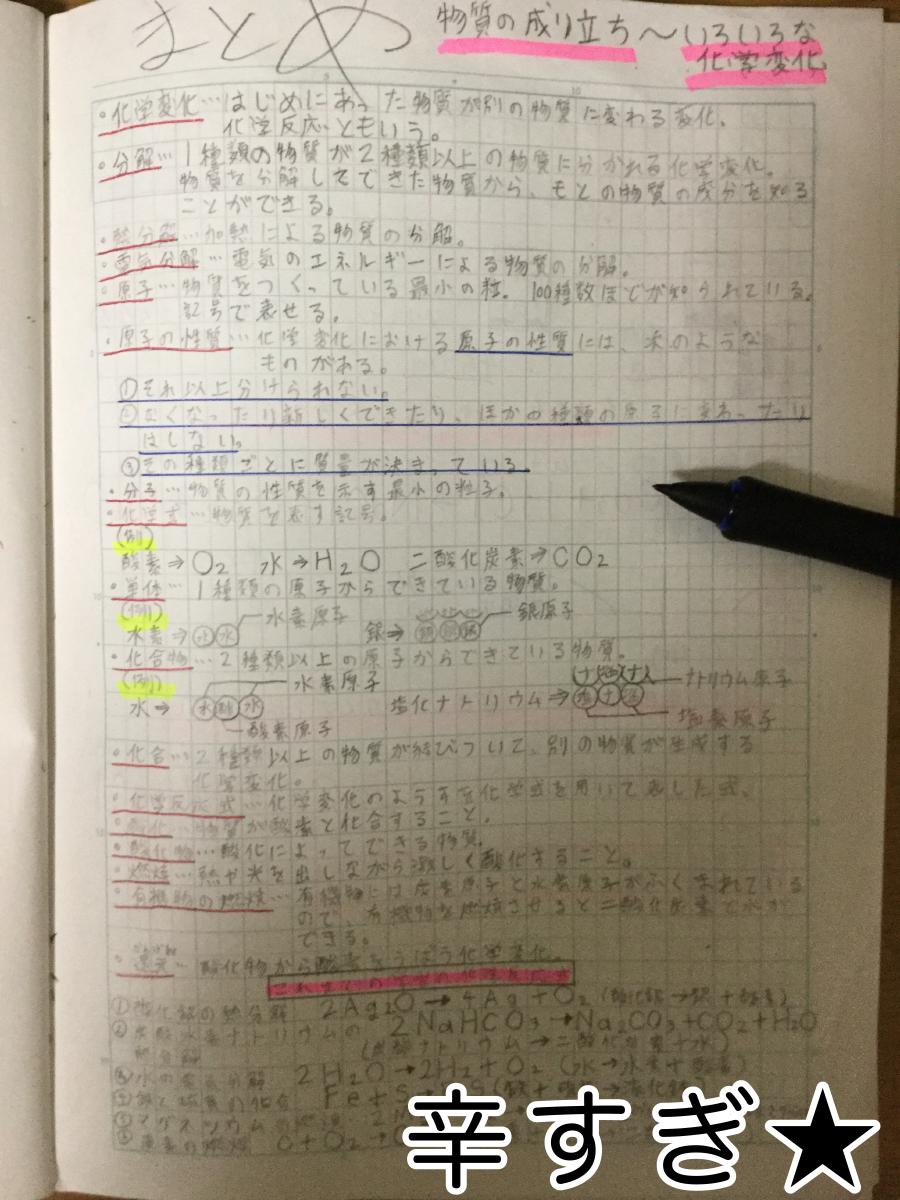 まとめ
物質の成り立ち〜いろいろな
化学変化
・化学変化…はじめにあった物質が別の物質に変わる変化。
化学反応ともいう。
・分解…1種類の物質が2種類以上の物質に分かれる化学変化。
物質を分解してできた物質から、もとの物質の成分を知る
ことができる。
・熱分解…加熱による物質の分解。
・電気分解…電気のエネルギーによる物質の分解。
・原子…物質をつくっている最小の粒。100種数ほどが知られている。
記号で表せる。
・原子の性質…化学変化における原子の性質には、次のような
ものがある。
①それ以上分けられない。
②なくなったり新しくできたり、ほかの種類の原子に変わったり
はしない。
③その種類ごとに質量が決まっている。
・分子…物質の性質を示す最小の粒子。
・化学式…物質を表す記号。
(例)
酸素⇒O₂ 水⇒H₂O 二酸化炭素⇒CO₂
・単体…1種類の原子からできている物質。
(例) 水素原子 銀原子
水素⇒水水 銀⇒銀銀銀
・化合物…2種類以上の原子からできている物質。
(例) 水素原子 ナトリウム原子
水⇒水酸水 塩化ナトリウム⇒
酸素原子 塩素原子
・化合…2種類以上の物質が結びついて、別の物質が生成する
化学変化。
・化学反応式…化学変化のようすを化学式を用いて表した式。
・酸化…物質が酸素と化合すること。
・酸化物…酸化によってできる物質。
・燃焼…熱や光を出しながら激しく酸化すること。
・有機物の燃焼…有機物には炭素原子と水素原子がふくまれている
ので、有機物を燃焼させると二酸化炭素と水が
できる。
・還元…酸化物から酸素をうばう化学変化。
①酸化銀の熱分解 2Ag₂O→4Ag+O₂ (酸化銀→銀+酸素)
②炭酸水素ナトリウムの 2NaHCO₃→Na₂CO₃+CO₂+H₂O
熱分解
③水の電気分解 2H₂O→2H₂+O₂ (水→水素+酸素)
④鉄と硫黄の化合 Fe+S→
⑤マグネシウムの燃焼
⑥炭素の燃焼 C+O₂→
辛すぎ★